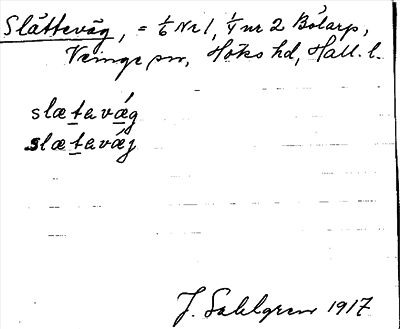 Slätteväg, = 1/6 Nr 1, 1/4 nr 2 Bölarp,
Veinge sn, Höks hd, Hall. l.
slætavǽ̨g
slætavǽ̨j
J. Sahlgren 1917